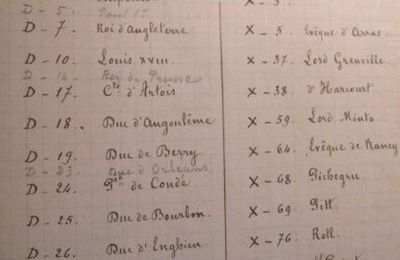 D - 5. Paul 1er
D - 7. Roi d'Angleterre
D - 10. Louis XVIII
D - 14. Roi de Prusse
D - 17. Cte d'Artois
D - 18. Duc d'Angoulême
D - 19. Duc de Berry
D - 23. Duc d'Orléans
D - 24. Pce de Condé
D - 25. Duc de Bourbon.
D - 26. Duc d'Enghien
X - 5. Evêque d'Arras
X - 37. Lord Grenville
X - 38. d'Harcourt
X - 59. Lord Minto
X - 64. Evêque de Nancy
X - 68. Pichegru
X - 69. Pitt
X - 76. Roll